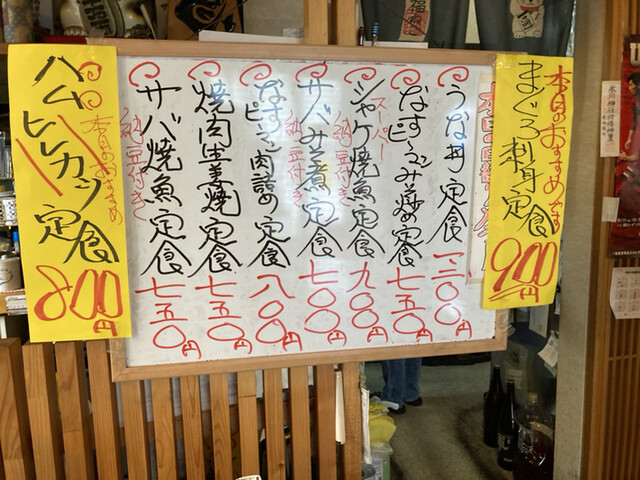 本日のおすすめです
まぐろ刺身定食
900円
うな丼定食 一二〇〇円
なすピーマンみそ炒め定食 七五〇円
スーパー
シャケ焼魚定食 九〇〇円
納豆付き
サバみそ煮定食 七〇〇円
納豆付き
なすピーマン肉詰め定食 八〇〇円
焼肉生姜焼定食 七五〇円
サバ焼魚定食 七五〇円
納豆付き
本日のおすすめ
ハムヒレカツ定食
800円